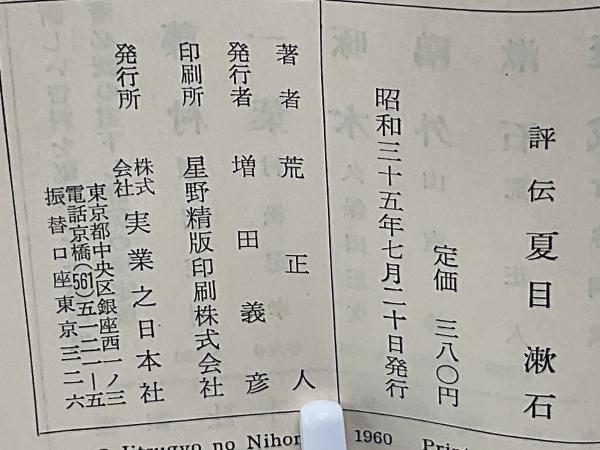 評伝 夏目漱石
定価 三八〇円
昭和三十五年七月二十日発行
著者 荒正人
発行者 増田義彦
印刷所 星野精版印刷株式会社
発行所 株式会社 実業之日本社
東京都中央区銀座西一ノ三
電話京橋(561)五一二一ー五
振替口座東京三二六
Jitsugyo no Nihon 1960 Print